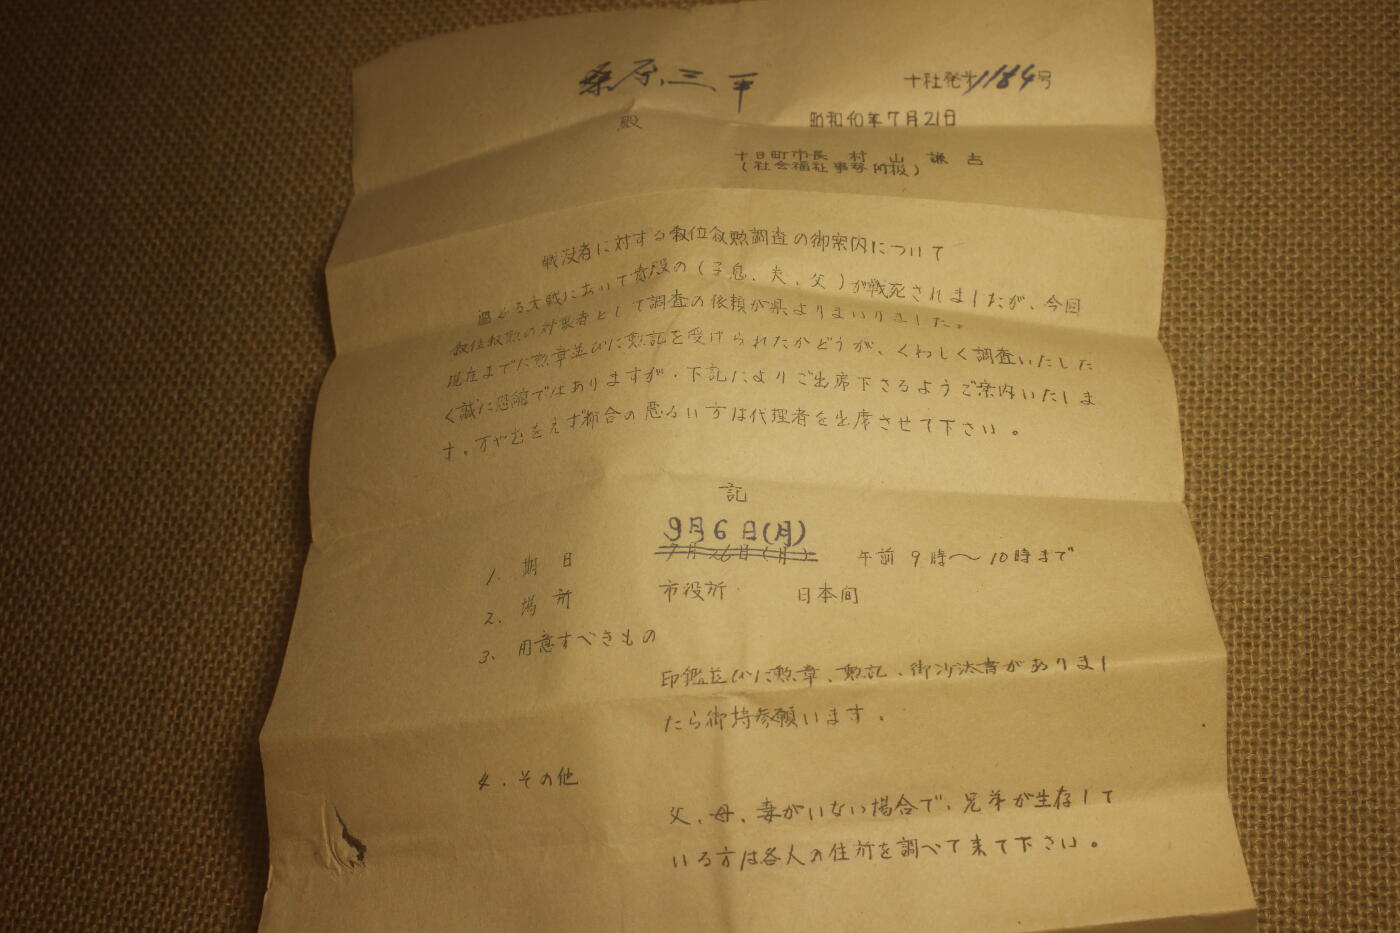 桑原三平
殿
十社発第1184号
昭和40年7月21日
十日町市長 村山謙吉
(社会福祉事務所扱)
戦没者に対する叙位叙勲調査の御案内について
過ぐる大戦において貴殿の(子息、夫、父)が戦死されましたが、今回
叙位叙勲の対象者として調査の依頼が県よりまいりました。
現在までに勲章並びに勲記を受けられたかどうか、くわしく調査いたした
く誠に恐縮ではありますが、下記によりご出席下さるようご案内いたしま
す。万やむをえず都合の悪るい方は代理者を出席させて下さい。
記
9月6日(月)
1. 期日 7月26日(月) 午前9時~10時まで
2. 場所 市役所 日本間
3. 用意すべきもの
印鑑並びに勲章、勲記、御沙汰書がありまし
たら御持参願います。
4. その他
父、母、妻がいない場合で、兄弟が生存して
いる方は各人の住所を調べて来て下さい。